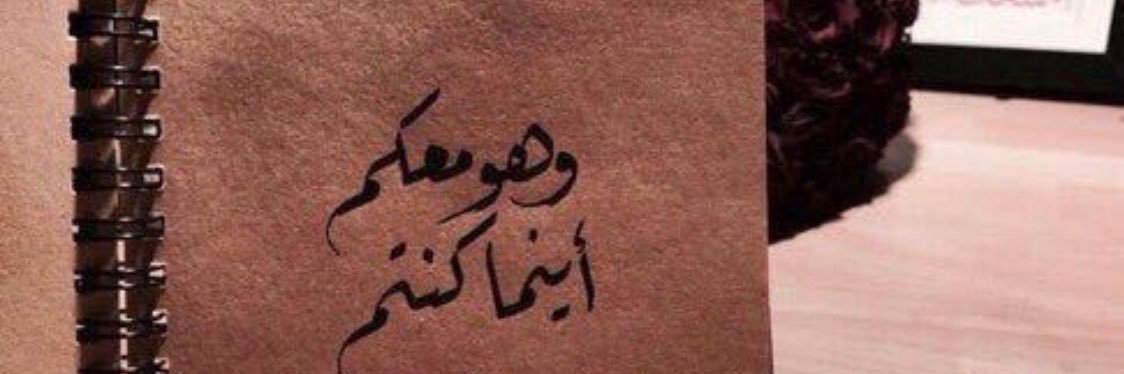 وهو معكم
أينما كنتم